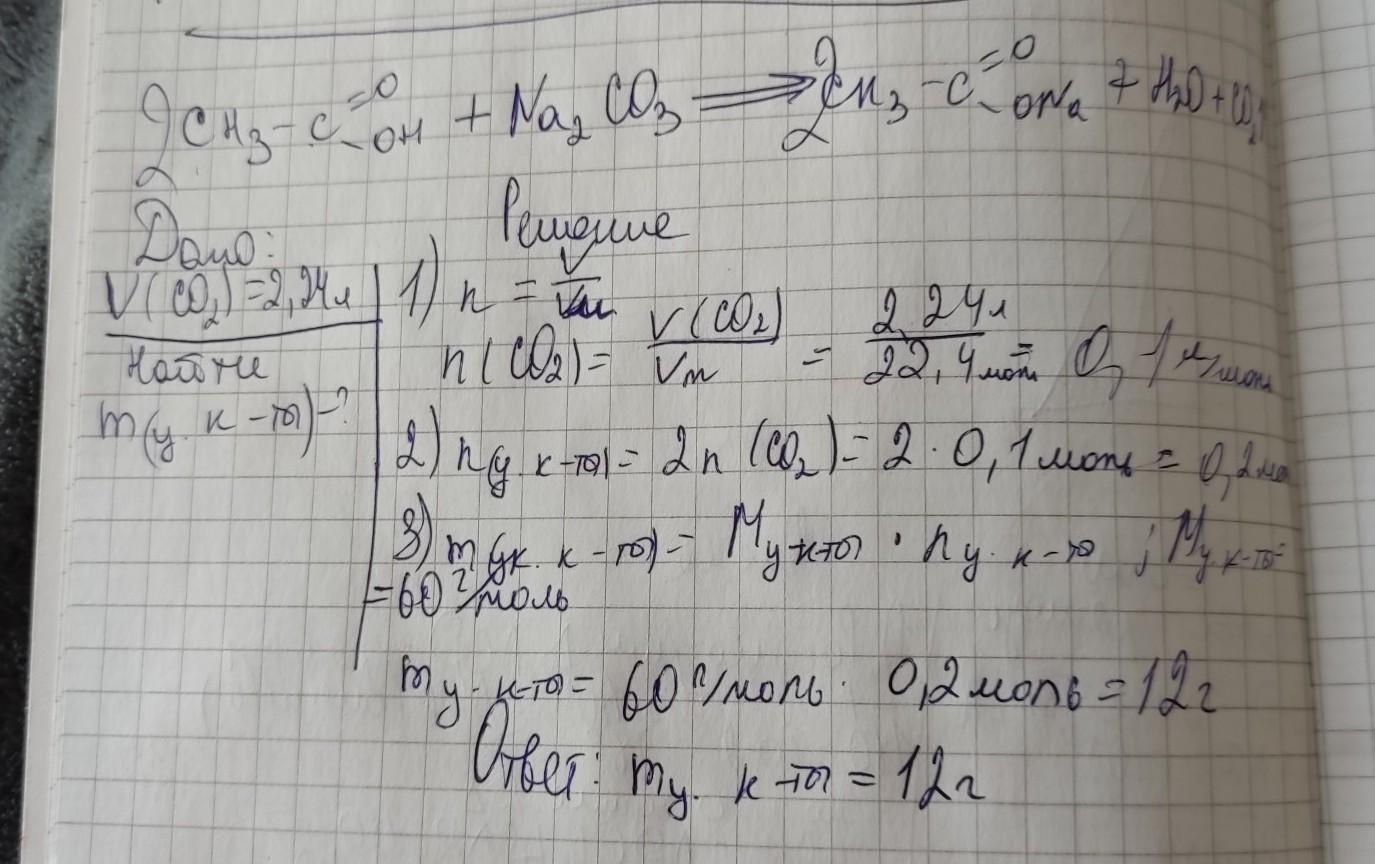 2CH3-C=O-OH + Na2CO3 ⟹ 2CH3-C=O-ONa + H2O + CO2↑
Дано:
V(CO2)=2,24л
Найти
m(у. к-ты)-?
Решение
1) n = V/Vm
n(CO2)= V(CO2)/Vm = 2,24л/22,4 = 0,1
2) n(у. к-ты)= 2n (CO2)= 2 · 0,1моль = 0,2мо
3) m(ук. к-ты)= Mу к-ты · nу. к-ты ; Mу. к-ты=
=60 г/моль
mу. к-ты= 60 г/моль · 0,2моль = 12г
Ответ: mу. к-ты = 12г